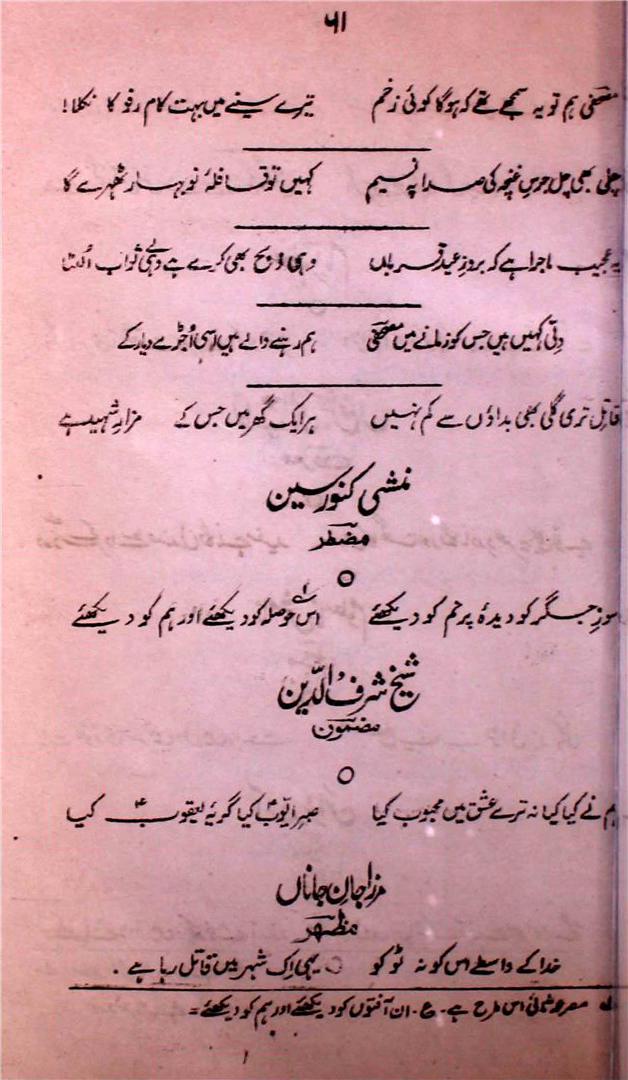 ۶۱
مصحفی ہم تو یہ سمجھے تھے کہ ہوگا کوئی زخم تیرے سینے میں بہت کام رفو کا نکلا!
چلی بھی چل جرسِ غنچہ کی صدا پہ نسیم کہیں تو قافلۂ نوبہار ٹھہرے گا
یہ عجیب ماجرا ہے کہ بروزِ عیدِ قرباں وہی ذبح بھی کرے ہے وہی ثواب اُلٹا
دلّی کہیں ہیں جس کو زمانے میں مصحفی ہم رہنے والے ہیں اسی اُجڑے دیار کے
قاتل تری گلی بھی بداؤں سے کم نہیں ہر ایک گھر میں جس کے مزارِ شہید ہے
منشی کنور سین
مضطر
سوزِ جگر کو دیدۂ پرنم کو دیکھئے اس حوصلہ کو دیکھئے اور ہم کو دیکھئے
شیخ شرفُ الدّین
مضمون
ہم نے کیا کیا نہ ترے عشق میں محبوب کیا صبرِ ایّوبؑ کیا گریۂ یعقوبؑ کیا
مرزا جانِ جاناں
مظہر
خدا کے واسطے اس کو نہ ٹوکو یہی اک شہر میں قاتل رہا ہے.
مصرعۂ ثانی اس طرح ہے۔ ع۔ ان آفتوں کو دیکھئے اور ہم کو دیکھئے =